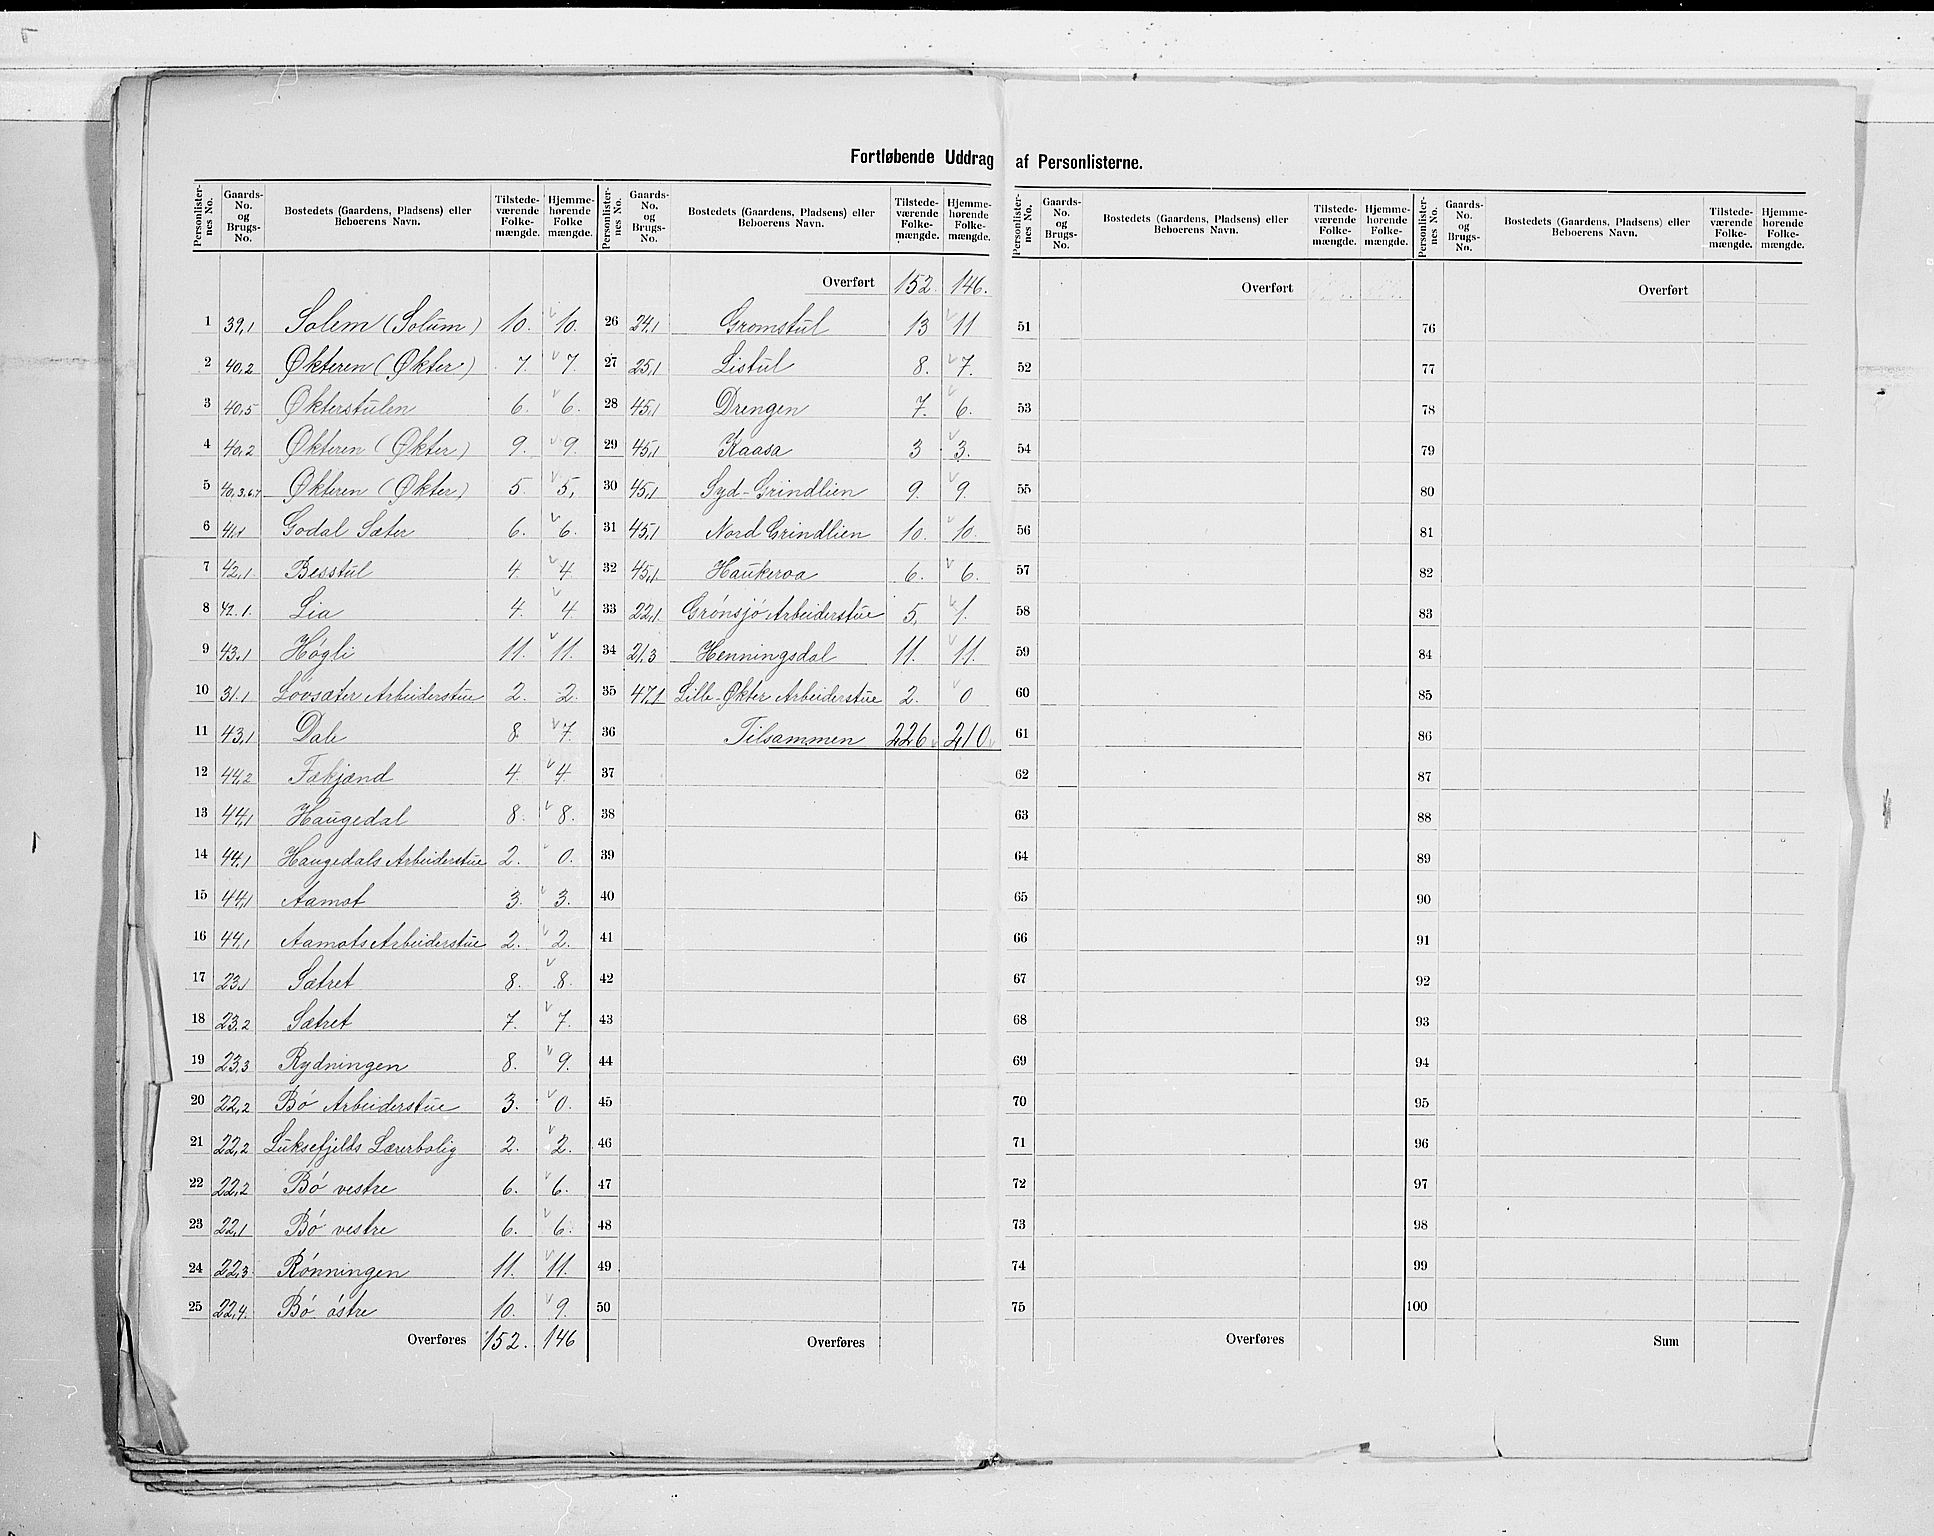 Fortløbende Uddrag af Personlisterne.
Personlister-nes No. | Gaards-No. og Brugs-No. | Bostedets (Gaardens, Pladsens) eller Beboerens Navn. | Tilstede-værende Folke-mængde. | Hjemme-hørende Folke mængde.
1 39,1 Solem (Solum) 10. 10.
2 40,2 Økteren (Økter) 7. 7.
3 40,5 Økterstulen 6. 6.
4 40,2 Økteren (Økter) 9. 9.
5 40,3.6.7 Økteren (Økter) 5. 5,
6 41,1 Godal Sæter 6. 6.
7 42,1. Besstul 4. 4.
8 42.1. Lia 4. 4.
9 43,1 Høgli 11. 11.
10 31.1 Lövsæter Arbeiderstue 2. 2.
11 43,1 Dale 8. 7.
12 44,2 Fækjænd 4. 4.
13 44,1 Haugedal 8. 8.
14 44,1 Haugedals Arbeiderstue 2. 0.
15 44,1 Aamot 3. 3.
16 44,1 Aamots Arbeiderstue 2. 2.
17 23,1 Sætret 8. 8.
18 23,2 Sætret 7. 7.
19 23,3 Rydningen 8. 9.
20 22,2 Bó Arbeiderstue 3. 0.
21 22,2 Luksefjelds Lærerbolig 2. 2.
22 22,2 Bó vestre 6. 6.
23 22,1 Bó vestre 6. 6.
24 22,3 Rónningen 11. 11.
25 22,4. Bó óstre 10. 9.
Overføres 152. 146
Personlister-nes No. | Gaards-No. og Brugs-No. | Bostedets (Gaardens, Pladsens) eller Beboerens Navn. | Tilstede-værende Folke-mængde. | Hjemme-hørende Folke-mængde.
Overført 152. 146.
26 24,1 Gromstul 13 11
27 25,1 Listul 8. 7.
28 45,1 Drengen 7. 6.
29 45,1 Kaasa 3 3.
30 45,1 Syd-Grindlien 9. 9.
31 45,1 Nord Grindlien 10. 10.
32 45,1 Haukeroa 6. 6.
33 22,1. Grónsjó Arbeiderstue 5, 1.
34 21,3 Henningsdal 11. 11.
35 47,1. Lille-Økter Arbeiderstue 2. 0
36 Tilsammen 226 210
37
38
39
40
41
42
43
44
45
46
47
48
49
50
Overføres
Personlister-nes No. | Gaards-No. og Brugs-No. | Bostedets (Gaardens, Pladsens) eller Beboerens Navn. | Tilstede-værende Folke-mængde. | Hjemme-hørende Folke-mængde.
Overført
51
52
53
54
55
56
57
58
59
60
61
62
63
64
65
66
67
68
69
70
71
72
73
74
75
Overføres
Personlister-nes No. | Gaards-No. og Brugs-No. | Bostedets (Gaardens, Pladsens) eller Beboerens Navn. | Tilstede-værende Folke-mængde. | Hjemme-hørende Folke-mængde.
Overført
76
77
78
79
80
81
82
83
84
85
86
87
88
89
90
91
92
93
94
95
96
97
98
99
100
Sum